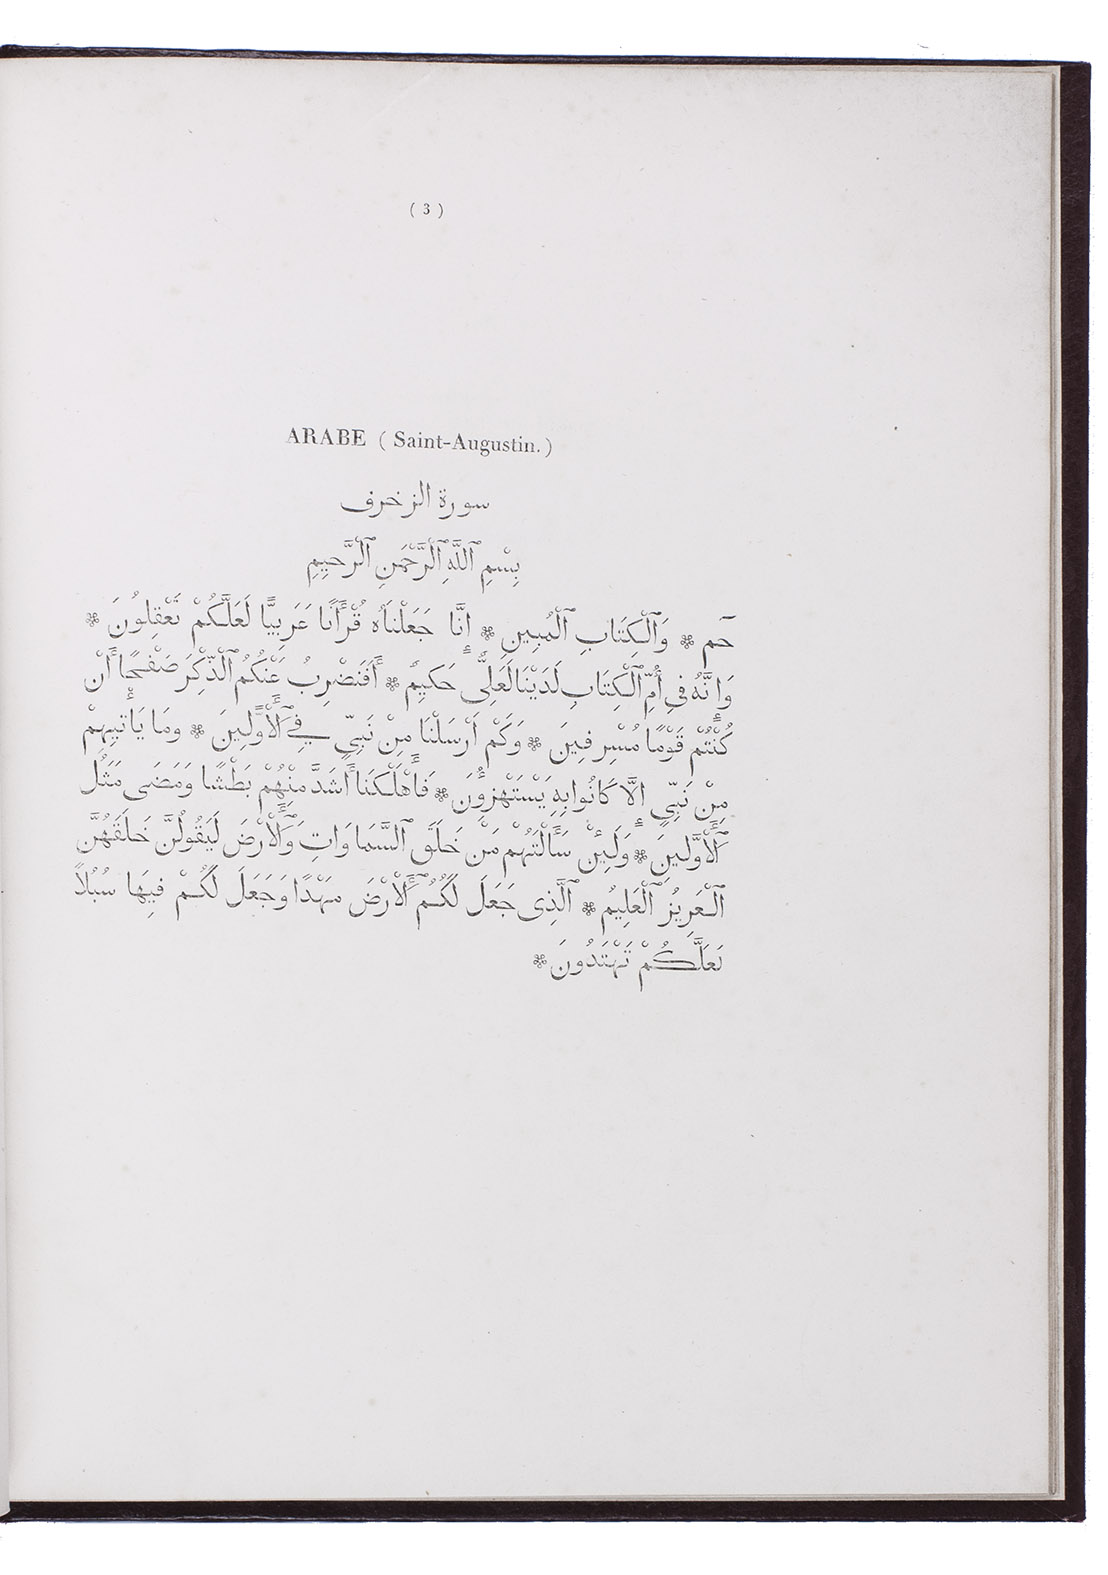 ( 3 )
ARABE ( Saint-Augustin. )
سورة الزخرف
بِسْمِ ٱللَّهِ ٱلْرَّحْمَنِ ٱلْرَّحِيِمِ
حَم ❊ وَٱلْكِتَابِ ٱلْمُبِينِ ❊ إِنَّا جَعَلْنَاهُ قُرْأَنَا عَرَبِيًّا لَعَلَّكُمْ تَعْقِلُونَ ❊
وَإِنَّهُ فِي أُمِّ ٱلْكِتَابِ لَدَيْنَا لَعَلِىٌّ حَكِيمٌ ❊ أَفَنَضْرِبُ عَنْكُمُ ٱلْذِّكْرَ صَفْحًا أَنْ
كُنْتُمْ قَوْمًا مُسْرِفِينَ ❊ وَكَمْ أَرْسَلْنَا مِنْ نَبِيٍّ فِي ٱلْأَوَّلِينَ ❊ وَمَا يَأْتِيهِمْ
مِنْ نَبِيٍّ إِلَّا كَانُوا بِهِ يَسْتَهْزِؤُنَ ❊ فَأَهْلَكْنَا أَشَدَّ مِنْهُمْ بَطْشًا وَمَضَى مَثَلُ
ٱلْأَوَّلِينَ ❊ وَلَئِنْ سَأَلْتَهُمْ مَنْ خَلَقَ ٱلسَّمَاوَاتِ وَٱلْأَرْضَ لَيَقُولُنَّ خَلَقَهُنَّ
ٱلْعَزِيزُ ٱلْعَلِيمُ ❊ ٱلَّذِى جَعَلَ لَكُمُ ٱلْأَرْضَ مَهْدًا وَجَعَلَ لَكُمْ فِيهَا سُبُلاً
لَعَلَّكُمْ تَهْتَدُونَ ❊